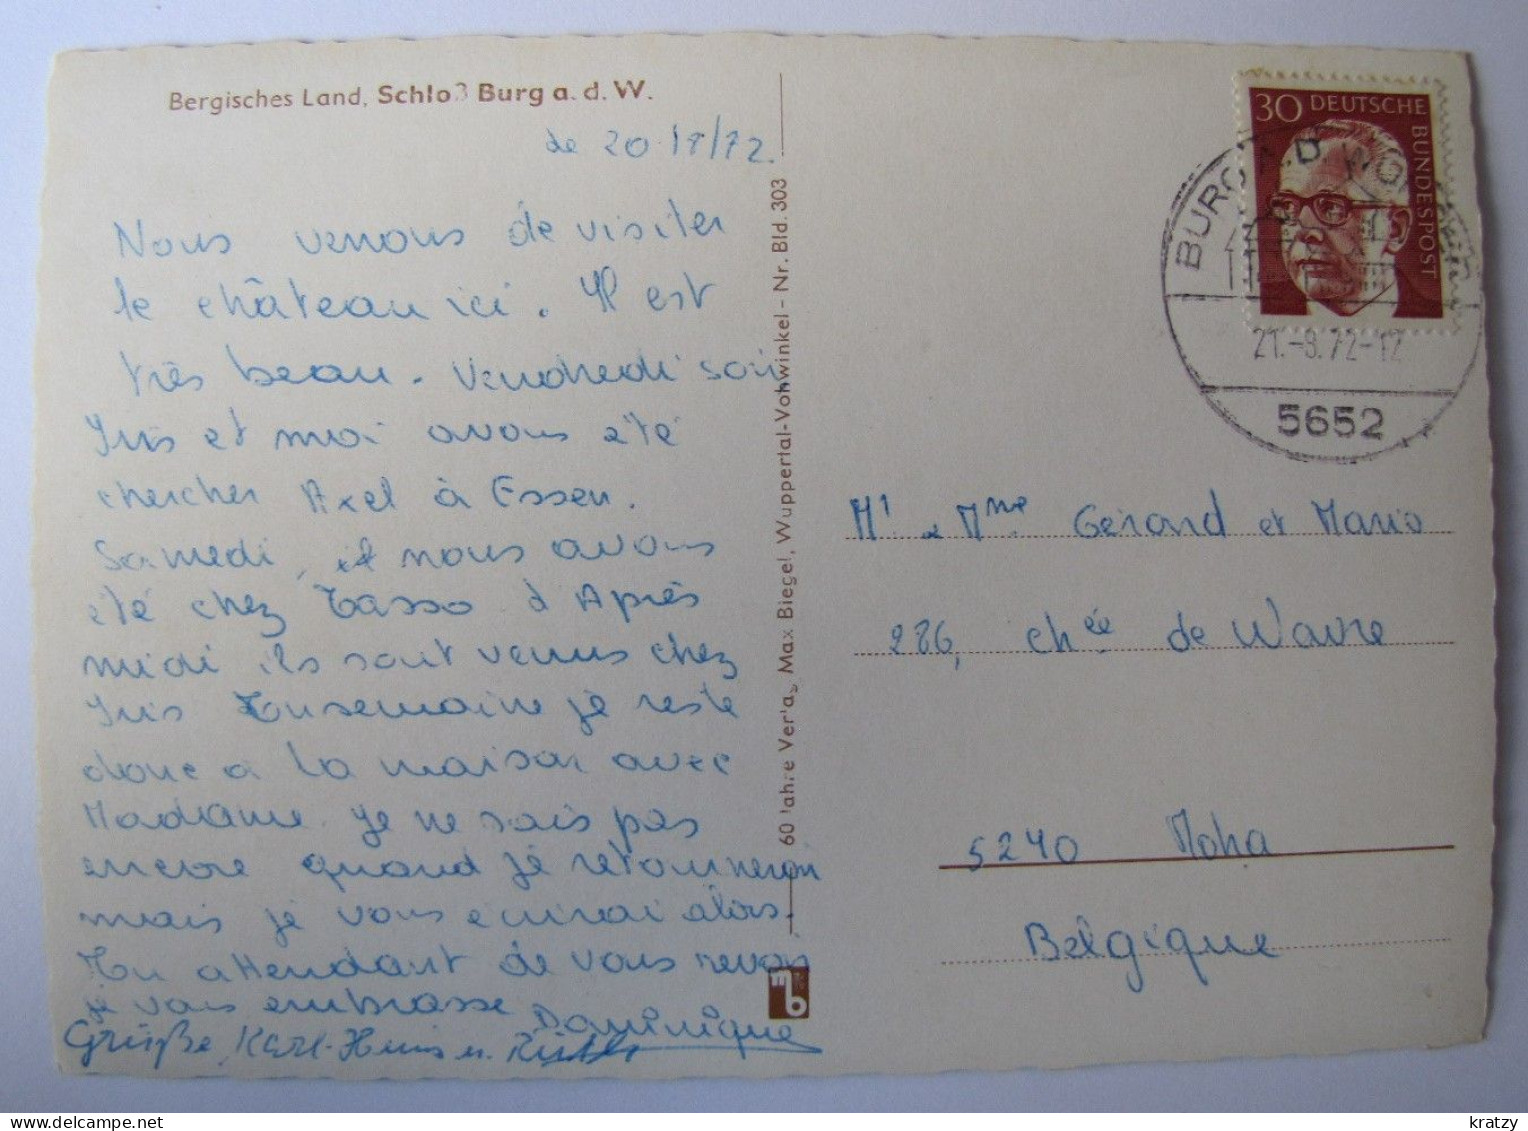 Bergisches Land, Schloß Burg a. d. W.
de 20
Nous venons de visiter
le château ici. Il est
très beau. Vendredi soir
Iris et moi avons été
chercher Axel à Essen.
Samedi, nous avons
été chez Tasso d'Après
midi ils sont venus chez
Iris je reste
donc à la maison avec
Madame. Je ne sais pas
encore quand je retournerai
mais je vous écrirai alors.
En attendant de vous revoir
je vous embrasse Dominique
Grüße, Karl-Heinz u.
60 Jahre Verlag Max Biegel, Wuppertal-Vohwinkel - Nr. Bld. 303
30 DEUTSCHE BUNDESPOST
BURG A.D. WUPPER
21.-8.72-12
5652
Mr & Mme Gérard et Mario
286, chée de Wavre
5240 Moha
Belgique
kratzy